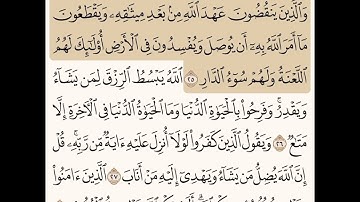 وَٱلَّذِينَ يَنقُضُونَ عَهْدَ ٱللَّهِ مِنۢ بَعْدِ مِيثَٰقِهِۦ وَيَقْطَعُونَ
مَآ أَمَرَ ٱللَّهُ بِهِۦٓ أَن يُوصَلَ وَيُفْسِدُونَ فِى ٱلْأَرْضِ أُو۟لَٰٓئِكَ لَهُمُ
ٱللَّعْنَةُ وَلَهُمْ سُوٓءُ ٱلدَّارِ ٢٥ ٱللَّهُ يَبْسُطُ ٱلرِّزْقَ لِمَن يَشَآءُ
وَيَقْدِرُ ۚ وَفَرِحُوا۟ بِٱلْحَيَوٰةِ ٱلدُّنْيَا وَمَا ٱلْحَيَوٰةُ ٱلدُّنْيَا فِى ٱلْءَاخِرَةِ إِلَّا
مَتَٰعٌ ٢٦ وَيَقُولُ ٱلَّذِينَ كَفَرُوا۟ لَوْلَآ أُنزِلَ عَلَيْهِ ءَايَةٌ مِّن رَّبِّهِۦ ۗ قُلْ
إِنَّ ٱللَّهَ يُضِلُّ مَن يَشَآءُ وَيَهْدِىٓ إِلَيْهِ مَنْ أَنَابَ ٢٧ ٱلَّذِينَ ءَامَنُوا۟